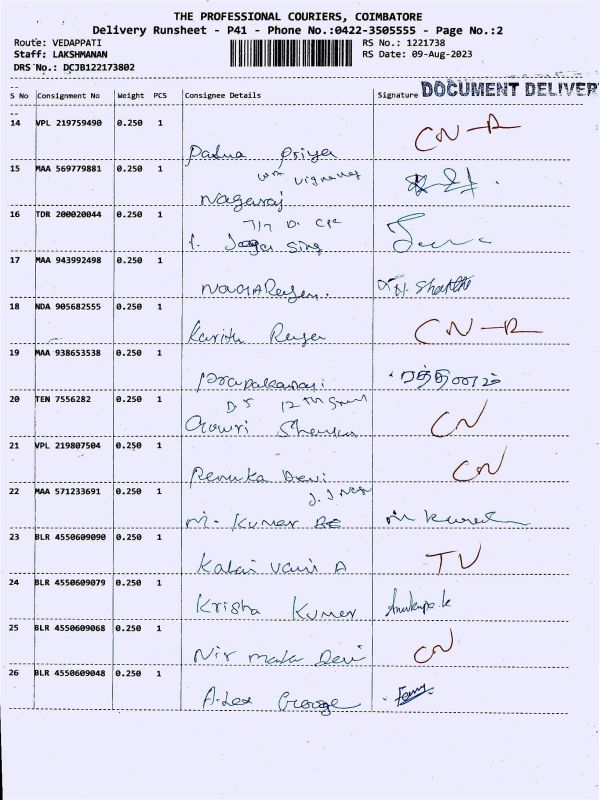 THE PROFESSIONAL COURIERS, COIMBATORE
Delivery Runsheet - P41 - Phone No.:0422-3505555 - Page No.:2
Route: VEDAPPATI RS No.: 1221738
Staff: LAKSHMANAN RS Date: 09-Aug-2023
DRS No.: DCJB122173802
S No Consignment No Weight PCS Consignee Details Signature DOCUMENT DELIVER
14 VPL 219759490 0.250 1 CN-R
Padma Priya
15 MAA 569779881 0.250 1
Nagaraj
16 TDR 200020044 0.250 1
17 MAA 943992498 0.250 1
18 NDA 905682555 0.250 1 CN-R
19 MAA 938653538 0.250 1
ரத்தினம்
20 TEN 7556282 0.250 1 CN
D 5 12TH Street
Gowri Shankar
21 VPL 219807504 0.250 1 CN
Renuka Devi
22 MAA 571233691 0.250 1
M. Kumar BE
23 BLR 4550609090 0.250 1 TV
Kalai Vani A
24 BLR 4550609079 0.250 1
Krisha Kumar
25 BLR 4550609068 0.250 1 CN
Nir mala Devi
26 BLR 4550609048 0.250 1
Alex George